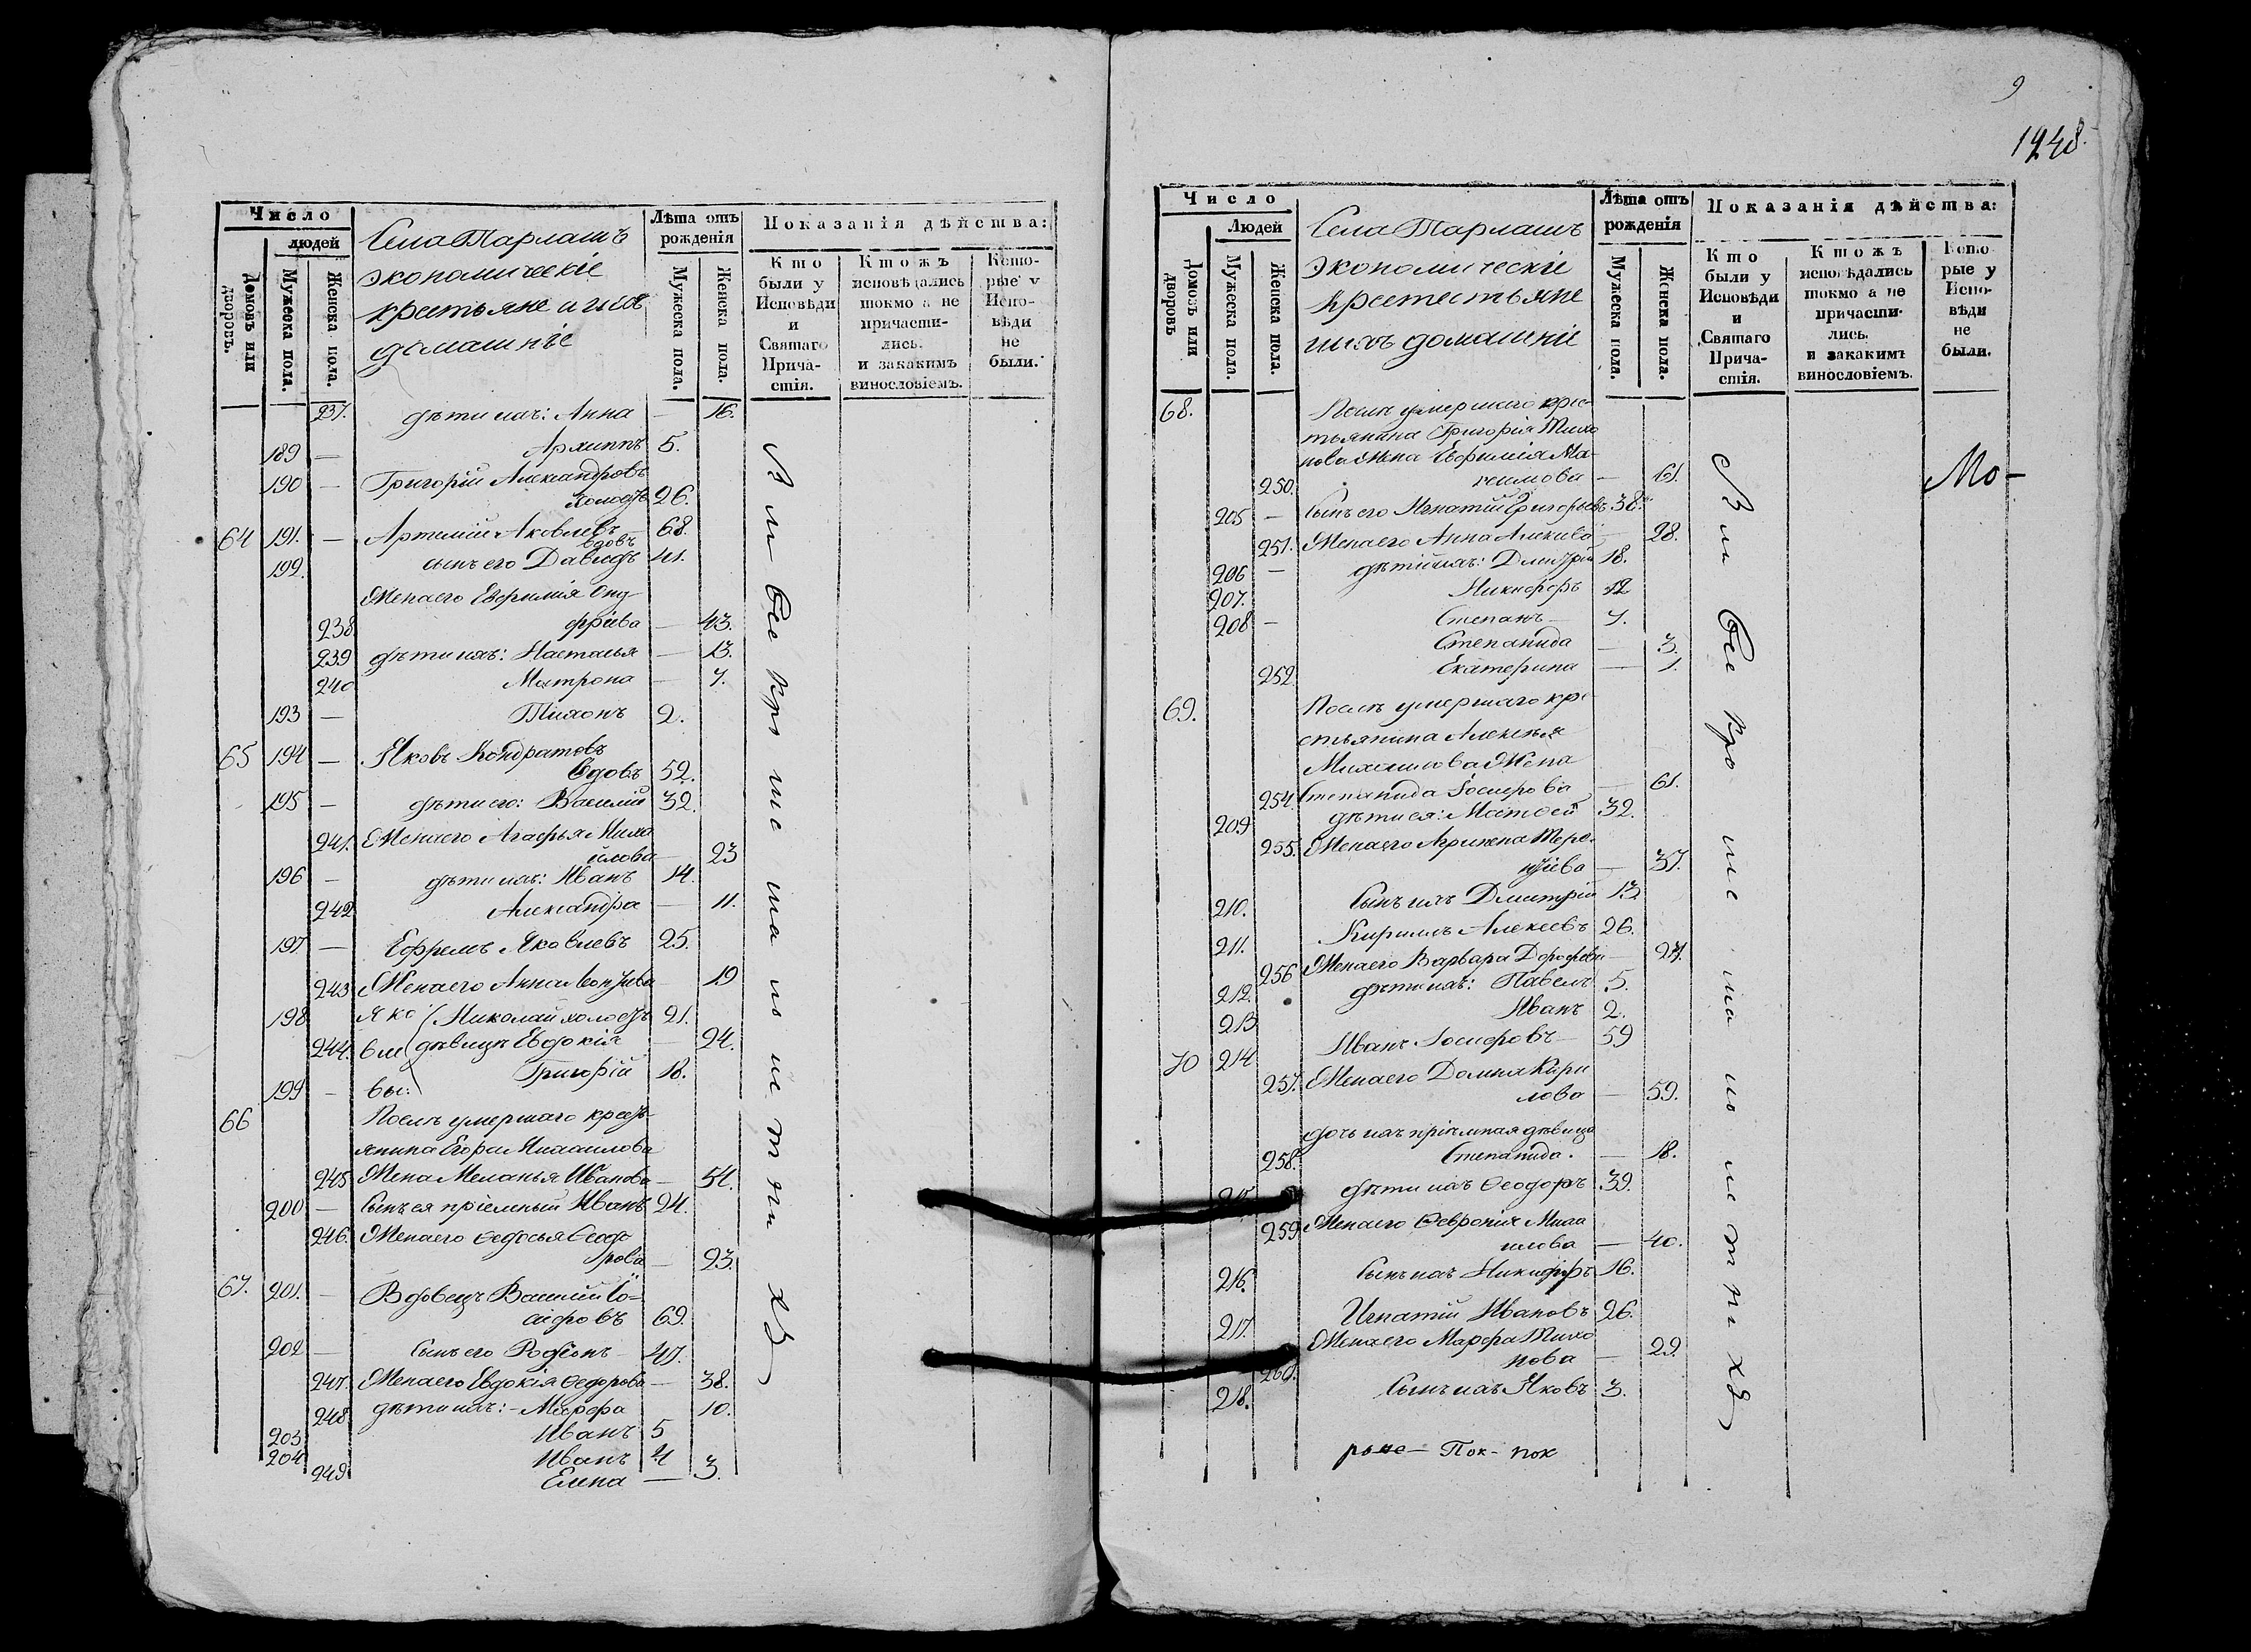 Число
людей
Домовъ или дворовъ.
Мужеска пола.
Женска пола.
Села Тарлашъ
экономическіе
крестьяне и ихъ
домашніе
Лѣта отъ рожденія
Мужеска пола.
Женска пола.
Показанія дѣйства:
Кто были у Исповѣди и Святаго Причастія.
Ктожъ исповѣдались токмо а не причастились. и закакимъ винословіемъ.
Которые у Исповѣди не были.
237. дѣти ихъ: Анна — 16.
189 — Архиппъ 5.
190 — Григорій Александровъ
холостъ 26.
64 191. — Артемій Яковлевъ 68.
вдовъ
192. сынъ его Давидъ 41.
Жена его Евфимія Ону-
238. фріева — 43.
239 дѣти ихъ: Настасья — 13.
240 Матрона — 7.
193 — Тихонъ 2.
65 194 — Яковъ Кондратовъ
вдовъ 52.
195 — дѣти его: Василій 32.
241. Жена его Агафья Миха
йлова — 23
196 — дѣти ихъ: Иванъ 14.
242 Александра — 11.
197 — Ефремъ Яковлевъ 25.
243 Жена его Анна 19
198 Яко Николай холостъ 21.
244. вле дѣвица Евдокія — 24.
Григорій 18.
199 — вы:
66 Послѣ умершаго кресть-
янина Егора Михаилова
245 Жена Меланья Иванова — 54.
200 — Сынъ ея пріемный Иванъ 24.
246. Жена его Ѳедосья Ѳеодо
рова — 23.
67. 201. — Вдовецъ Василій Іо-
сифовъ 69.
202 — Сынъ его Родіонъ 47.
247. Жена его Евдокія Ѳедорова — 38.
248 дѣти ихъ: Марфа 10.
203 Иванъ 5
204 Иванъ 4
249 Елена — 3.
9
1248.
Число
Людей
Домовъ или дворовъ
Мужеска пола.
Женска пола.
Села Тарлашъ
экономическіе
крестестьяне
ихъ домашніе
Лѣта отъ рожденія
Мужеска пола.
Женска пола.
Показанія дѣйства:
Кто были у Исповѣди и Святаго Причастія.
Ктожъ исповѣдались токмо а не причастились. и закакимъ винословіемъ.
Которые у Исповѣди не были.
68. Послѣ умершаго крес-
тьянина Григорія Тихо
нова Жена Евфимія Ма-
250. ксимова — 61.
205 — Сынъ его Игнатій Григорьевъ 38.
251. Жена его Анна Алексѣева — 28.
206 — дѣти ихъ: Димитрій 18.
207. Никифоръ 12
208 — Степанъ 7.
Степанида — 3.
252 Екатерина — 1.
69. Послѣ умершаго кре
стьянина Алексѣя
Михаилова Жена
254. Степанида Іосифова — 61.
209 дѣти ея: Матѳей 32.
255. Жена его Агрипена Тере-
нтіева — 37.
210. Сынъ ихъ Дмитрій 13
211. Кирилъ Алексѣевъ 26.
256 Жена его Варвара Дорофеева — 27.
212. дѣти ихъ: Павелъ 5.
213 Иванъ 2.
70 214 Иванъ Іосифовъ 59
257. Жена его Домна Кири
лова — 59.
дочь ихъ пріемная дѣвица
258. Степанида. — 18.
215 дѣти ихъ Ѳеодоръ 39.
259 Жена его Ѳевронія Миха
илова — 40.
216. Сынъ ихъ Никифоръ 16.
217. Игнатій Ивановъ 26.
Жена его Марфа Тихо
260. нова — 29.
218. Сынъ ихъ Яковъ 3.
Мо-